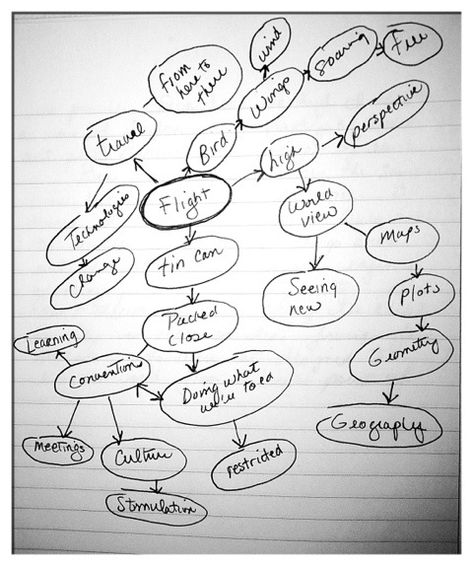 wind
Soaring
Free
from
here to
there
Wings
travel
Bird
high
perspective
Flight
Technologies
World
view
maps
tin can
Change
Seeing
new
plots
Packed
close
Learning
Geometry
Convention
Doing what
we're told
Geography
meetings
Culture
restricted
Stimulation